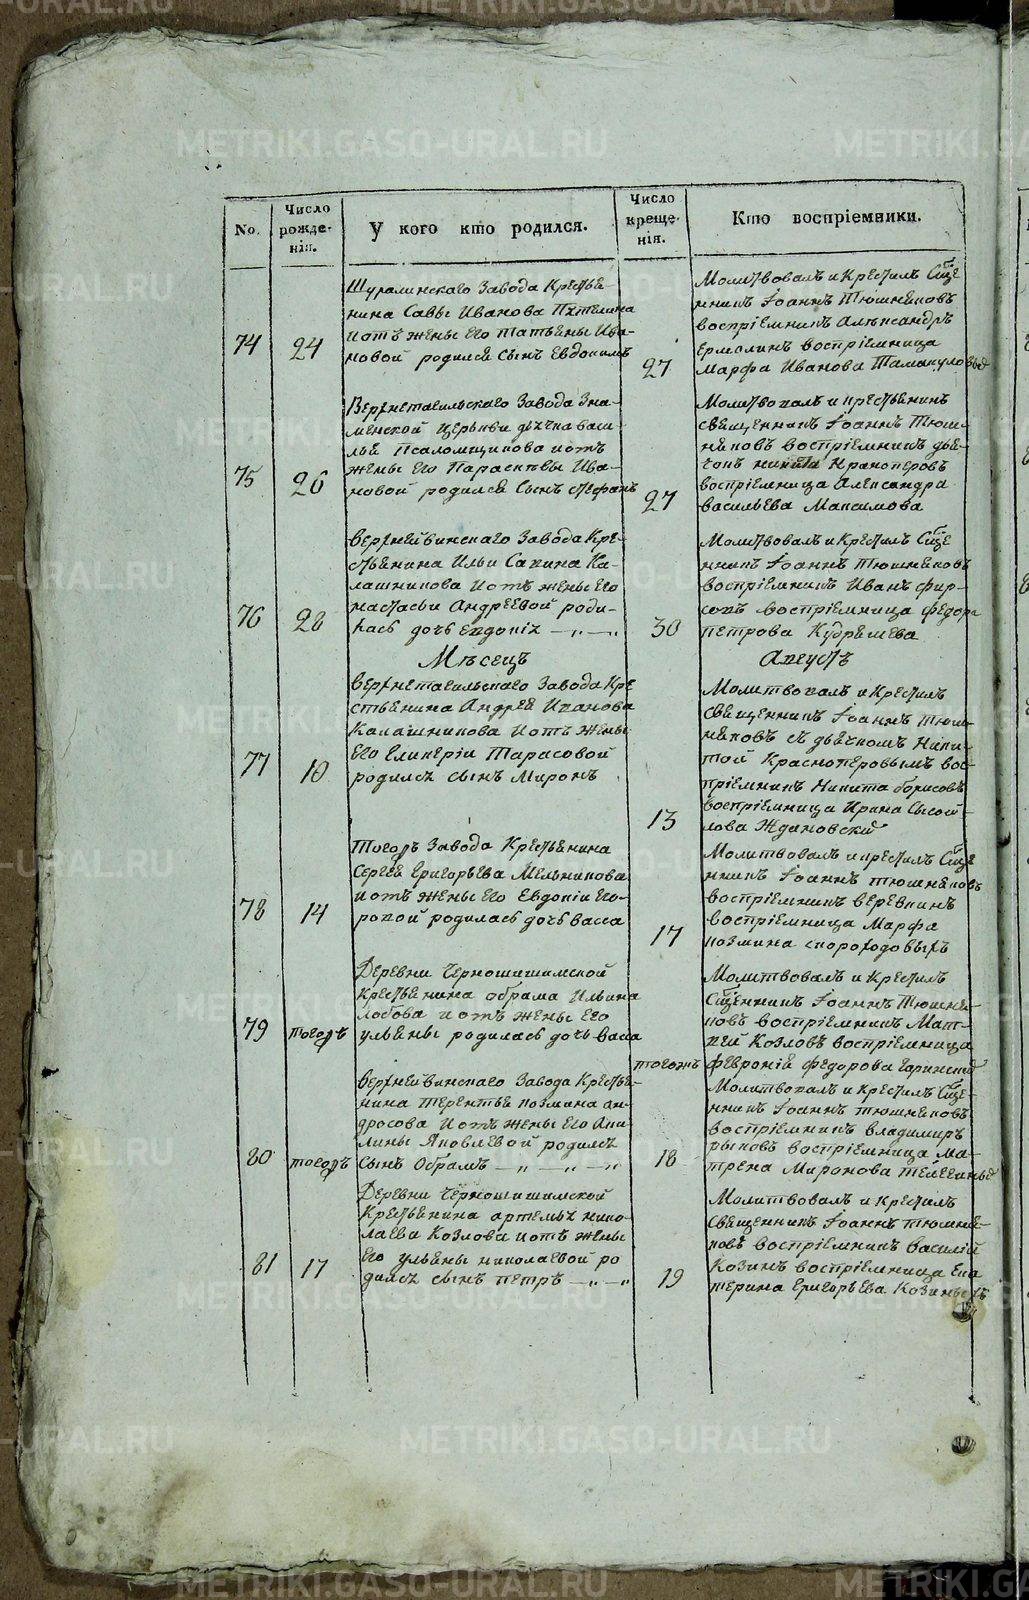 METRIKI.GASO-URAL.RU
No.
Число рожде-нія.
У кого кто родился.
Число креще-нія.
Кто воспріемники.
74
24
Шуралинскаго Завода Крестья-
нина Савы Иванова
иотъ жены Его Татьяны Ива-
новой родился Сынъ Евдокимъ
27
Молитвовалъ и Крестилъ Сще
нникъ Іоаннъ Тюшняковъ
воспріемникъ Александръ
Ермолинъ воспріемница
Марфа Иванова
75
26
Верхнетагильскаго Завода Зна-
менской Церькви дьячка васи-
лья Псаломщикова иотъ
жены Его Параскевы Ива-
новой родился Сынъ Стефанъ
27
Молитвовалъ и крестьянинъ
священникъ Іоаннъ Тюш-
няковъ воспріемникъ дья-
чокъ никита Краноперовъ
воспріемница Александра
васильева Максимова
76
28
верхнейвинскаго Завода Кре-
стьянина Ильи Савина Ка-
лашникова Иотъ жены Его
настасьи Андреевой роди-
лась дочь Евдокія — „ — „
30
Молитвовалъ и Крестилъ Сще
нникъ Іоаннъ Тюшняковъ
воспріемникъ Иванъ фир-
совъ воспріемница федора
петрова Кудряшева
Мѣсецъ
Августъ
77
10
верхнетагильскаго Завода Кре
стьянина Андрея Иванова
Калашникова Иотъ Жены
Его Гликеріи Тарасовой
родился сынъ Миронъ
13
Молитвовалъ и Крестилъ
священникъ Іоаннъ Тюш-
няковъ съ дьячкомъ Ники-
той Красноперовымъ вос-
пріемникъ Никита борисовъ
воспріемница Ирина Сысой-
лова Ждановски
78
14
Тогожъ Завода Крестьянина
Сергея Григорьева Мельникова
иотъ жены Его Евдокіи Его-
ровой родилась дочь васса
17
Молитвовалъ и крестилъ Сще
нникъ Іоаннъ тюшняковъ
воспріемникъ веревкинъ
воспріемница Марфа
козмина скороходовыхъ
79
тогожъ
Деревни Черношишимской
Крестьянина обрама Ильина
Лобова и отъ жены Его
ульяны родилась дочь васа
тогожъ
Молитвовалъ и Крестилъ
Сщенникъ Іоаннъ Тюшня-
ковъ воспріемникъ Мат-
вей Козловъ воспріемница
февронія Федорова
80
тогожъ
верхнейвинскаго Завода Крестья-
нина терентья козмина ан-
дросова Иотъ жены Его Аки-
лины Яковлевой родился
Сынъ Обрамъ — „ — „ — „
18
Молитвовалъ и Крестилъ Сще-
нникъ Іоаннъ тюшняковъ
воспріемникъ владимиръ
рыковъ воспріемница Ма-
трена Миронова
81
17
Деревни Черношишимской
Крестьянина артемья нико-
лаева Козлова иотъ жены
Его ульяны николаевой ро
дился сынъ петръ — „ — „
19
Молитвовалъ и крестилъ
священникъ Іоаннъ тюшня-
ковъ воспріемникъ василій
Козинъ воспріемница Ека
терина Григорьева Козиныхъ